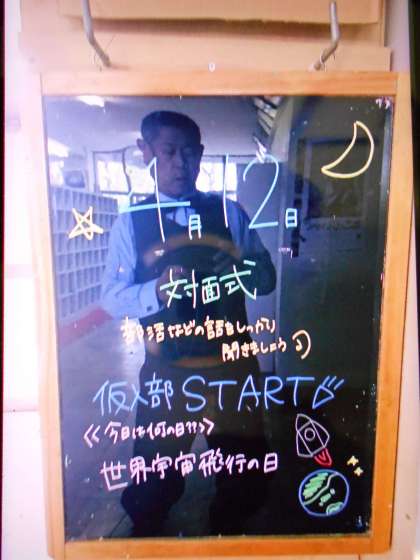 4月12日
対面式
部活などの話をしっかり
聞きましょう
仮入部START
<<今日は何の日??>>
世界宇宙飛行の日